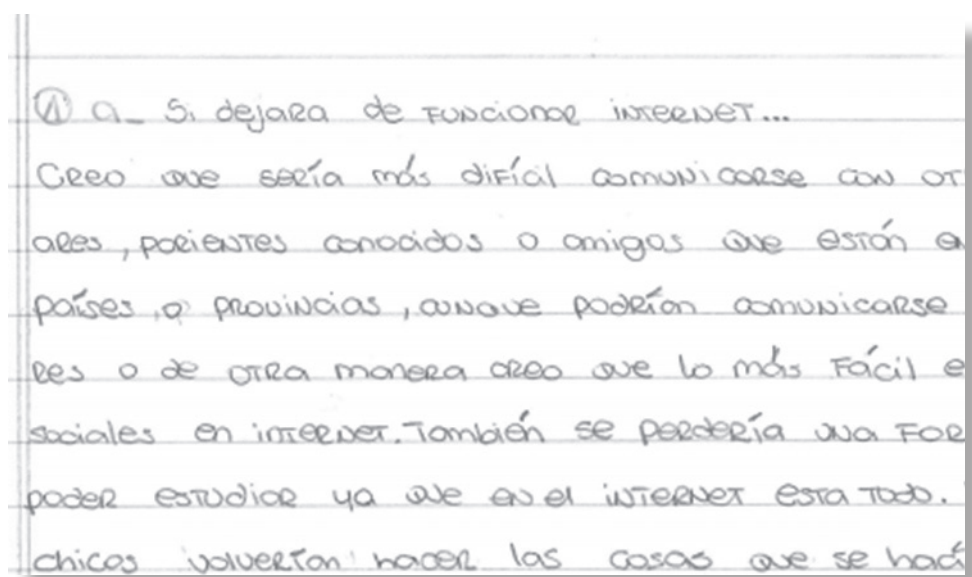 ① a_ Si dejara de funcionar internet...
Creo que sería más difícil comunicarse con ot
ares, parientes conocidos o amigos que están e
países, o provincias, aunque podrían comunicarse
res o de otra manera creo que lo más fácil e
sociales en internet. También se perdería una for
poder estudiar ya que en el internet esta todo.
chicos volverían hacer las cosas que se hací